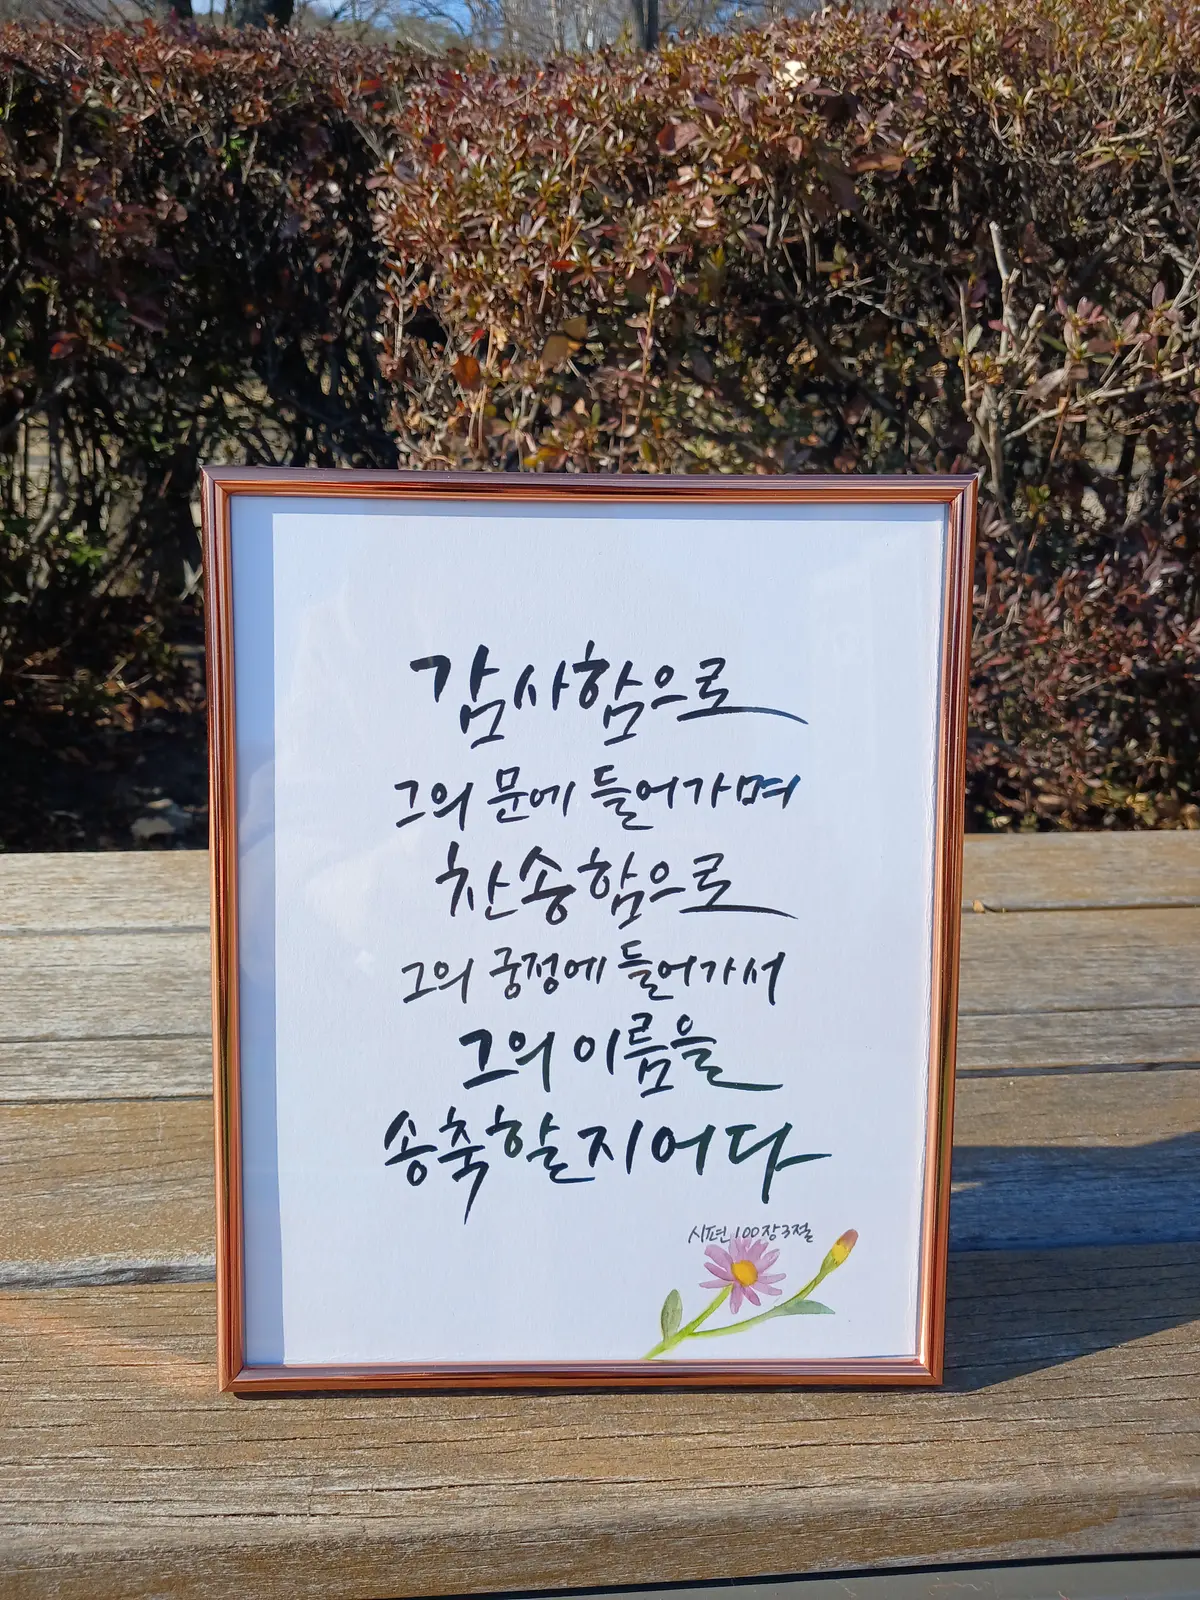 감사함으로
그의 문에 들어가며
찬송함으로
그의 궁정에 들어가서
그의 이름을
송축할지어다
시편 100장 3절